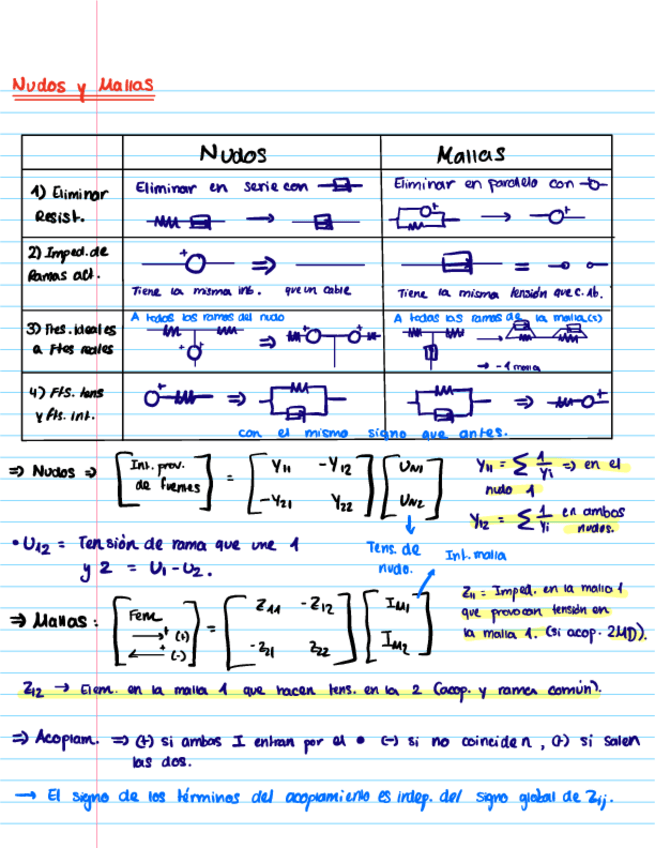 Nudos y Mallas
Nudos Mallas
1) Eliminar Resist.
Eliminar en serie con
Eliminar en paralelo con
2) Imped. de Ramas act.
Tiene la misma int. que un cable
Tiene la misma tensión que c. Ab.
3) Ftes. ideales a Ftes reales
A todas las ramas del nudo
A todas las ramas de la malla(s)
→ -1 malla
4) Fts. tens y Fts. int.
con el mismo signo que antes.
⇒ Nudos ⇒ [Int. prov. de fuentes] = [Y11 -Y12 -Y21 Y22] [UN1 UN2]
Y11 = Σ 1/Yi ⇒ en el nudo 1
Y12 = Σ 1/Yi en ambos nudos.
• U12 = Tensión de rama que une 1
y 2 = U1 - U2.
Tens. de nudo.
Int. malla
⇒ Mallas: [Fem → + (+) ← + (-)] = [Z11 -Z12 -Z21 Z22] [IM1 IM2]
Z11 = Imped. en la malla 1
que provocan tensión en
la malla 1. (si acop. 2MD).
Z12 → Elem. en la malla 1 que hacen tens. en la 2 (acop. y rama común).
⇒ Acoplam. ⇒ (+) si ambas I entran por el • (-) si no coinciden, (+) si salen
las dos.
→ El signo de los términos del acoplamiento es indep. del signo global de Zij.